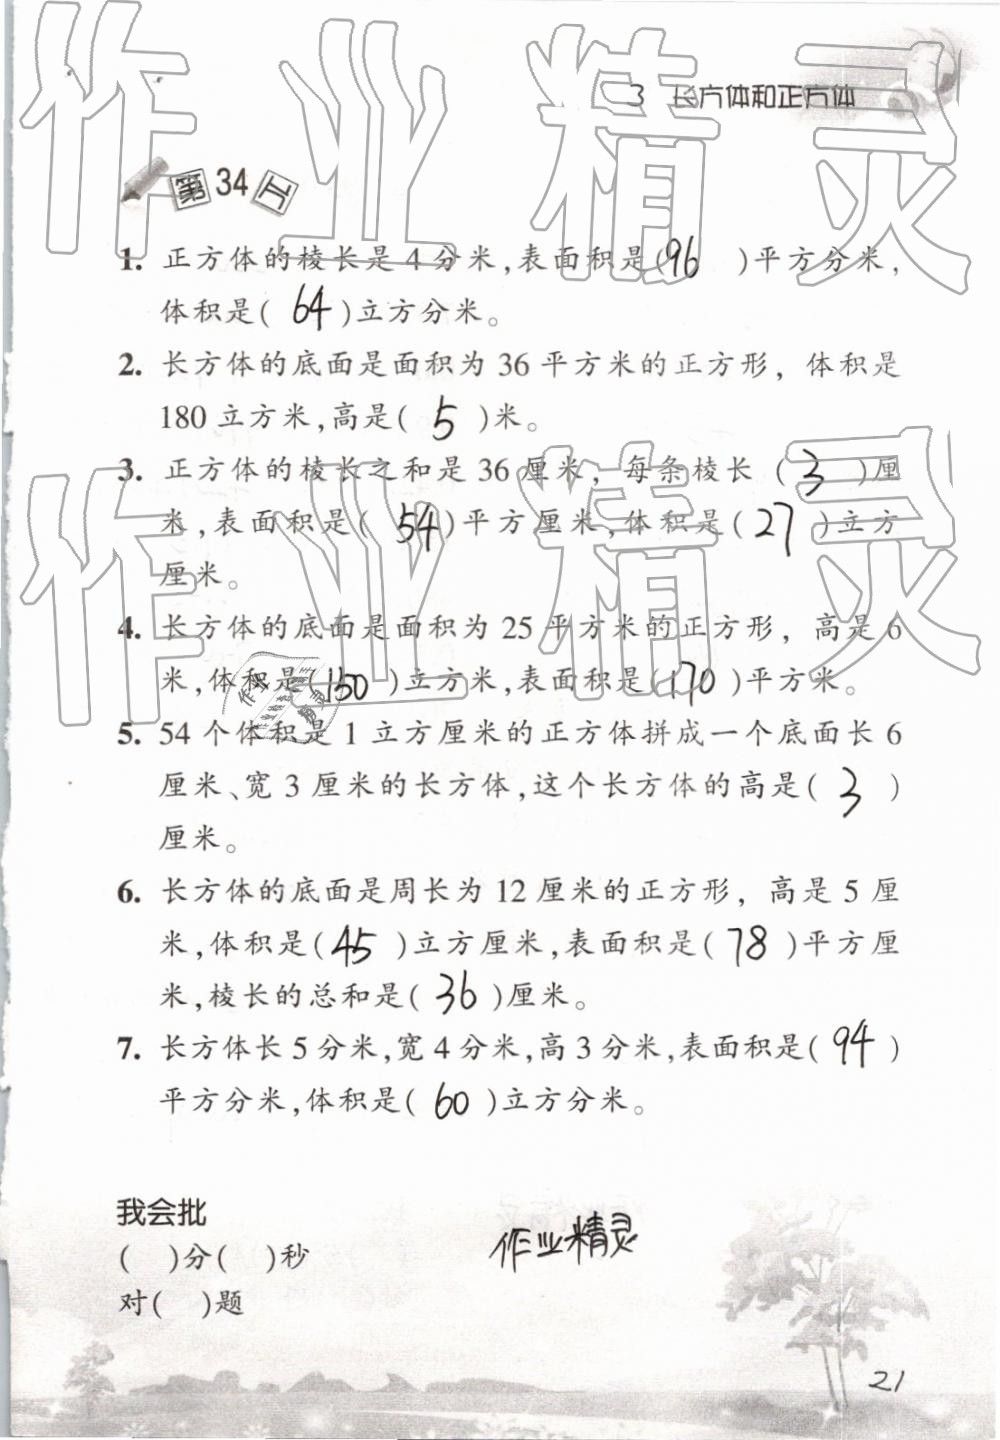 3 长方体和正方体
第34工
1. 正方体的棱长是4分米,表面积是(96)平方分米,
体积是(64)立方分米。
2. 长方体的底面是面积为36平方米的正方形,体积是
180立方米,高是(5)米。
3. 正方体的棱长之和是36厘米,每条棱长(3)厘
米,表面积是(54)平方厘米,体积是(27)立方
厘米。
4. 长方体的底面是面积为25平方米的正方形,高是6
米,体积是(150)立方米,表面积是(170)平方米。
5. 54个体积是1立方厘米的正方体拼成一个底面长6
厘米、宽3厘米的长方体,这个长方体的高是(3)
厘米。
6. 长方体的底面是周长为12厘米的正方形,高是5厘
米,体积是(45)立方厘米,表面积是(78)平方厘
米,棱长的总和是(36)厘米。
7. 长方体长5分米,宽4分米,高3分米,表面积是(94)
平方分米,体积是(60)立方分米。
我会批
( )分( )秒
对( )题
作业精灵
21
作业精灵
作业精灵